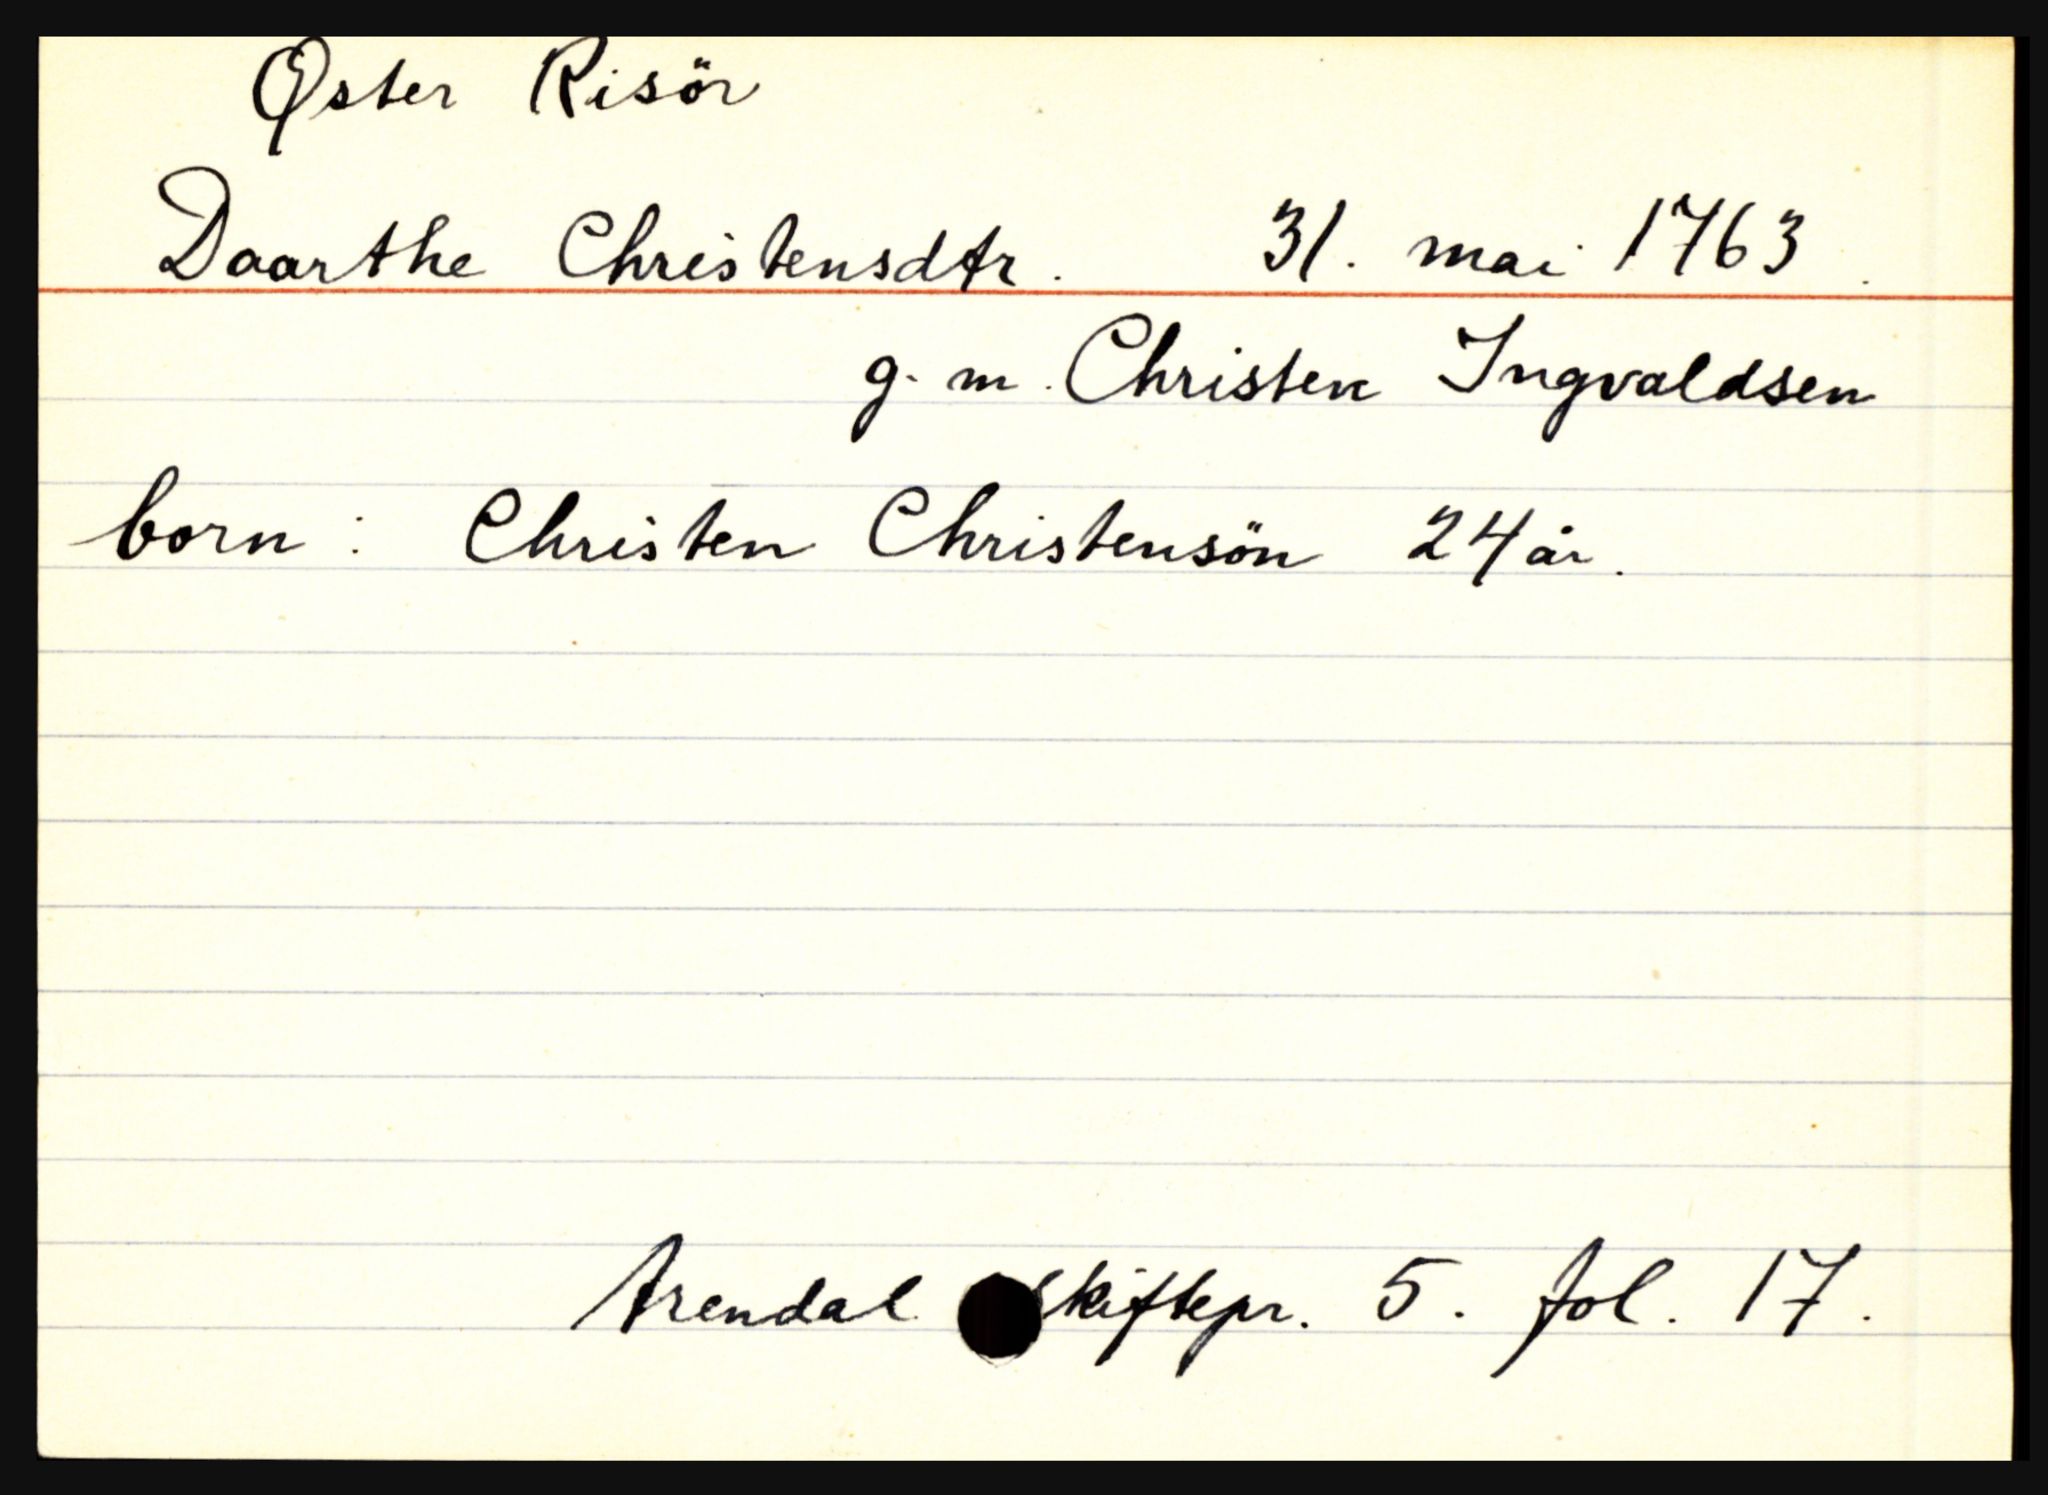 Øster Risör
Daarthe Christensdtr. 31. mai 1763.
g. m. Christen Ingvaldsen
born: Christen Christensön 24 år.
Arendal skiftepr. 5. fol. 17.